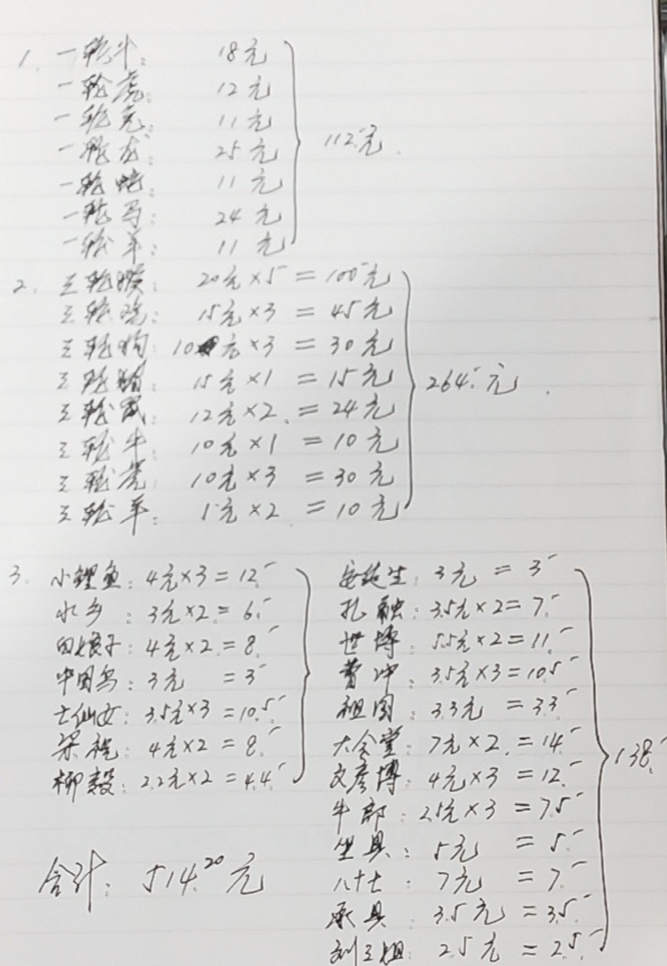 1. 一轮牛: 18元
一轮虎: 12元
一轮兔: 11元
一轮龙: 25元
一轮蛇: 11元
一轮马: 24元
一轮羊: 11元
112元.
2. 三轮猴: 20元×5 = 100元
三轮鸡: 15元×3 = 45元
三轮狗: 10元×3 = 30元
三轮猪: 15元×1 = 15元
三轮鼠: 12元×2 = 24元
三轮牛: 10元×1 = 10元
三轮虎: 10元×3 = 30元
三轮羊: 5元×2 = 10元
264.元.
3. 小鲤鱼: 4元×3 = 12.
水乡: 3元×2 = 6.
田娘子: 4元×2 = 8.
中国鸟: 3元 = 3
七仙女: 3.5元×3 = 10.5.
梁祝: 4元×2 = 8.
柳毅: 2.2元×2 = 4.4.
安徒生: 3元 = 3
扎融: 3.5元×2 = 7.
世博: 5.5元×2 = 11.
曹冲: 3.5元×3 = 10.5
祖国: 3.3元 = 3.3.
大会堂: 7元×2 = 14.
文彦博: 4元×3 = 12.
牛郎: 2.5元×3 = 7.5
坐具: 5元 = 5.
八十七: 7元 = 7.
承具: 3.5元 = 3.5.
刘三姐: 2.5元 = 2.5.
138.
合计: 514.20元